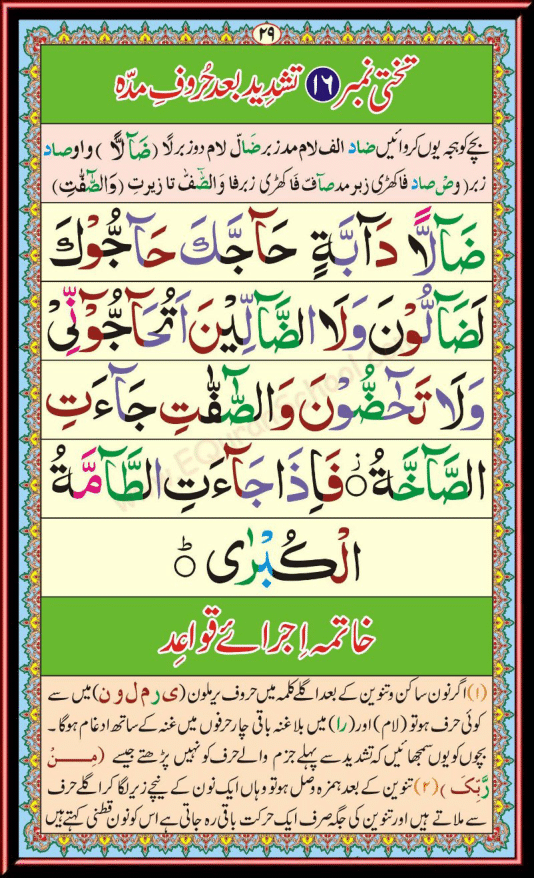 ۲۹
تختی نمبر ۱۶ تشدید بعد حُروفِ مدّہ
بچے کو ہجہ یوں کروائیں ضاد الف لام مد زبر ضَآلّ لام دو زبر لًا (ضَآلًّا) واو صاد
زبر (وَصْ صاد فا کھڑی زبر مد صآفّ فا کھڑی زبر فٰا وَالصّٰٓفّٰ تا زیر تِ (وَالصّٰٓفّٰتِ)
ضَآلًّا دَآبَّةٍ حَآجَّكَ حَآجُّوْكَ
لَضَآلُّوْنَ وَلَا الضَّآلِّيْنَ اَتُحَآجُّوْٓنِّيْ
وَلَا تَحٰٓضُّوْنَ وَالصّٰٓفّٰتِ جَآءَتِ
الصَّآخَّةُ ۞ۚ فَاِذَا جَآءَتِ الطَّآمَّةُ
الْكُبْرٰى ۞ؕ
خاتمہ اِجرائے قواعِد
(۱) اگر نون ساکن و تنوین کے بعد اگلے کلمہ میں حروف یرملون (ی ر م ل و ن) میں سے
کوئی حرف ہو تو (لام) اور (را) میں بلا غنہ باقی چار حرفوں میں غنہ کے ساتھ ادغام ہوگا۔
بچوں کو یوں سمجھائیں کہ تشدید سے پہلے جزم والے حرف کو نہیں پڑھتے جیسے (مِنْ
رَّبِّکَ) (۲) تنوین کے بعد ہمزہ وصل ہو تو وہاں ایک نون کے نیچے زیر لگا کر اگلے حرف
سے ملاتے ہیں اور تنوین کی جگہ صرف ایک حرکت باقی رہ جاتی ہے اس کو نون قطنی کہتے ہیں
www.EQuranSchool.com